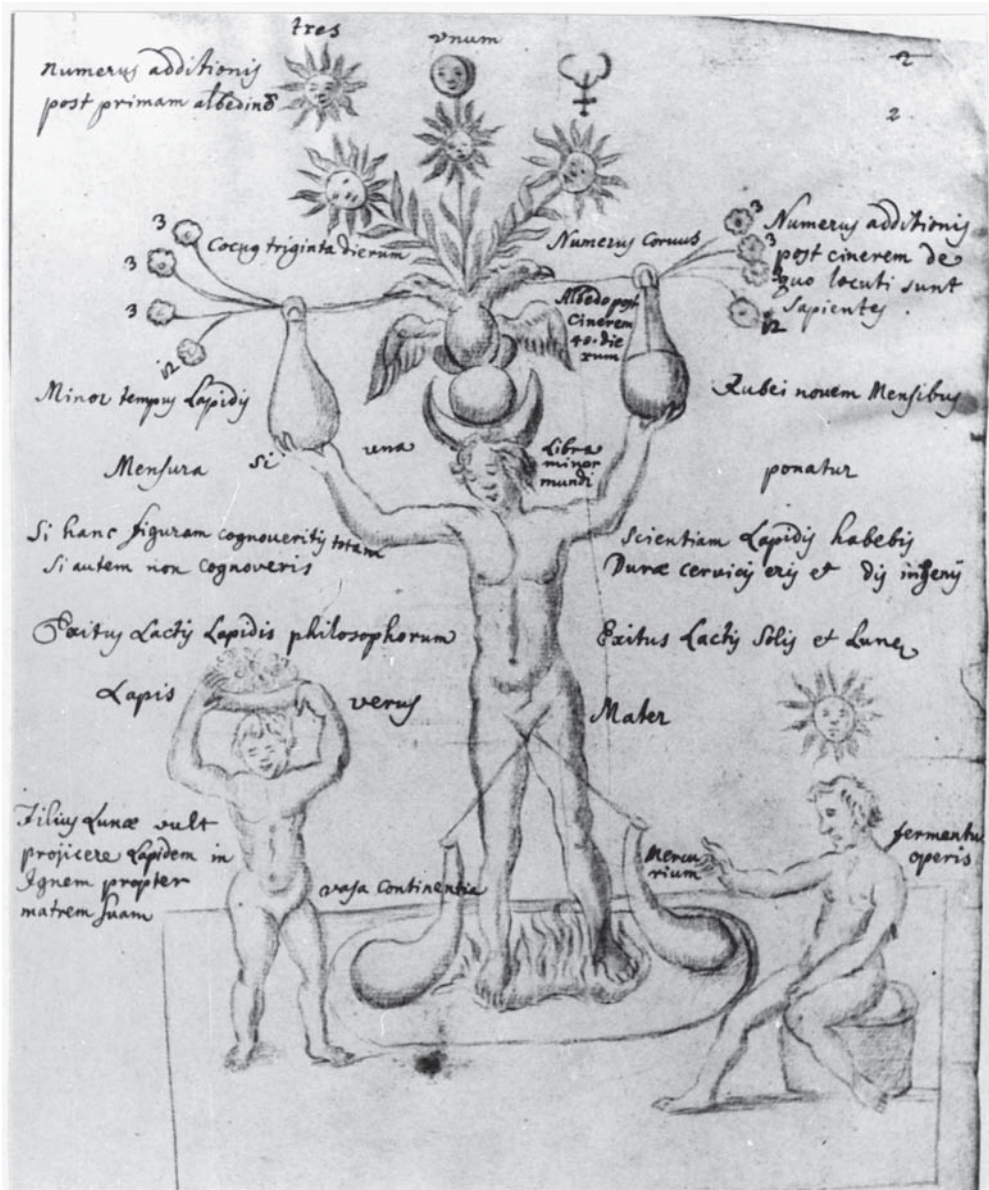 tres
vnum
Numerus additionis
post primam albedinē
2
2
3
3
3
12
Cocus triginta dierum
Numerus Coruus
3
3
12
Numerus additionis
post cinerem de
quo locuti sunt
Sapientes
Albedo post
Cinerem
40. die
rum
Minor tempus Lapidis
Rubei novem Mensibus
Mensura si una
Libra
minor
mundi
ponatur
Si hanc figuram cognoveritis totam
Scientiam Lapidis habebis
Si autem non cognoveris
Duræ cervicis eris et dis ingenij
Exitus Lactis Lapidis philosophorum
Exitus Lactis Solis et Lunę
Lapis verus Mater
Filius Lunæ vult
projicere Lapidem in
Ignem propter
matrem suam
vasa continentia
Mercu
rium
fermentū
operis